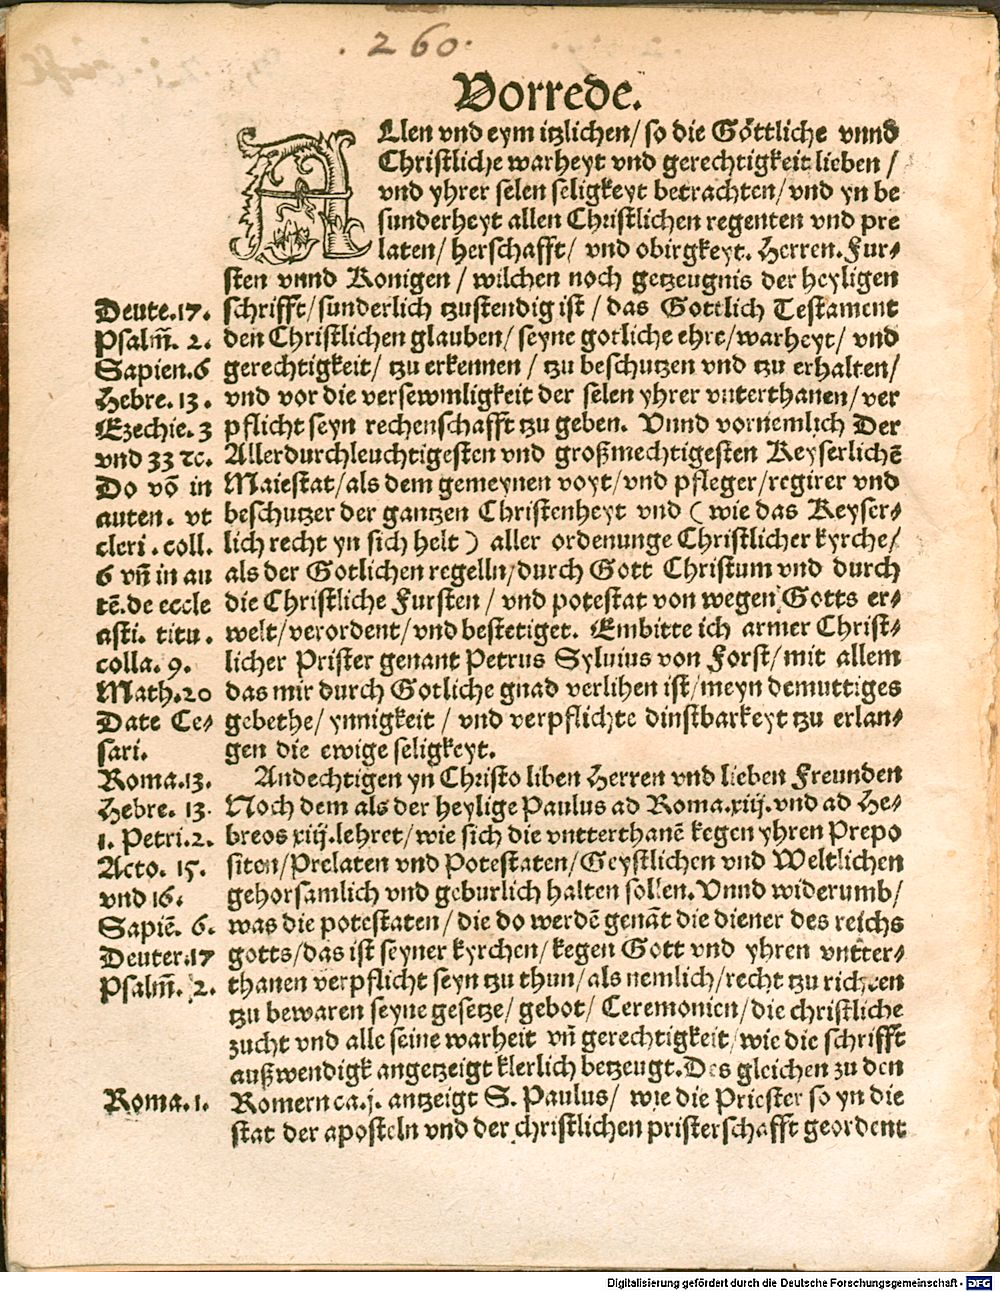 . 260 .
Vorrede.
ALlen vnd eym itzlichen/ so die Göttliche vnnd
Christliche warheyt vnd gerechtigkeit lieben /
vnd yhrer selen seligkeyt betrachten/ vnd yn be
sunderheyt allen Christlichen regenten vnd pre
laten/ herschafft/ vnd obirgkeyt. Herren. Fur-
sten vnnd Konigen / wilchen noch getzeugnis der heyligen
schrifft/ sunderlich tzustendig ist / das Gottlich Testament
den Christlichen glauben/ seyne gotliche ehre/ warheyt/ vnd
gerechtigkeit/ tzu erkennen / tzu beschutzen vnd tzu erhalten/
vnd vor die versewmligkeit der selen yhrer vnterthanen/ ver
pflicht seyn rechenschafft tzu geben. Vnnd vornemlich Der
Allerdurchleuchtigesten vnd großmechtigesten Keyserlichē
Maiestat/ als dem gemeynen voyt/ vnd pfleger/ regirer vnd
beschutzer der gantzen Christenheyt vnd ( wie das Keyser-
lich recht yn sich helt ) aller ordenunge Christlicher kyrche/
als der Gotlichen regelln/ durch Gott Christum vnd durch
die Christliche Fursten / vnd potestat von wegen Gotts er-
welt/ verordent/ vnd bestetiget. Embitte ich armer Christ-
licher Prister genant Petrus Syluius von Forst/ mit allem
das mir durch Gotliche gnad verlihen ist/ meyn demuttiges
gebethe/ ynnigkeit / vnd verpflichte dinstbarkeyt tzu erlan-
gen die ewige seligkeyt.
Andechtigen yn Christo liben Herren vnd lieben Freunden
Noch dem als der heylige Paulus ad Roma. xiij. vnd ad He-
breos xiij. lehret/ wie sich die vntterthanē kegen yhren Prepo
siten/ Prelaten vnd Potestaten/ Geystlichen vnd Weltlichen
gehorsamlich vnd geburlich halten sollen. Vnnd widerumb/
was die potestaten/ die do werdē genāt die diener des reichs
gotts/ das ist seyner kyrchen/ kegen Gott vnd yhren vntter-
thanen verpflicht seyn tzu thun/ als nemlich/ recht tzu richten
tzu bewaren seyne gesetze/ gebot/ Ceremonien/ die christliche
zucht vnd alle seine warheit vñ gerechtigkeit/ wie die schrifft
außwendigk angetzeigt klerlich betzeugt. Des gleichen zu den
Romern ca. j. antzeigt S. Paulus/ wie die Priester so yn die
stat der aposteln vnd der christlichen pristerschafft geordent
Deute. 17.
Psalm̄. 2.
Sapien. 6
Hebre. 13.
Ezechie. 3
vnd 33 ꝛc.
Do vō in
auten. vt
cleri. coll.
6 vñ in au
tē. de eccle
asti. titu.
colla. 9.
Math. 20
Date Ce-
sari.
Roma. 13.
Hebre. 13.
1. Petri. 2.
Acto. 15.
vnd 16.
Sapiē. 6.
Deuter. 17
Psalm̄. 2.
Roma. 1.
Digitalisierung gefördert durch die Deutsche Forschungsgemeinschaft - DFG